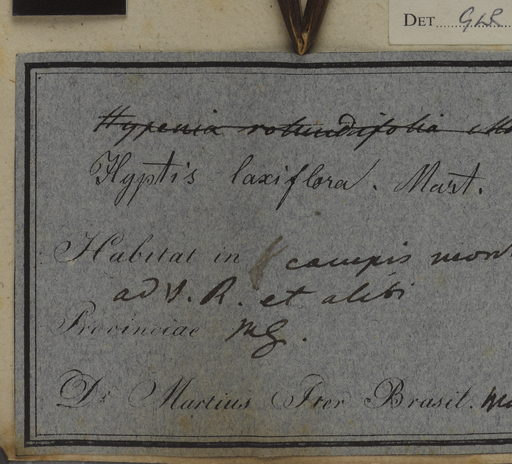 DET GLS
Hypenia rotundifolia
Hyptis laxiflora. Mart.
Habitat in campis mont
ad V. R. et alibi
Provinciae MG.
Dr Martius Iter Brasil.